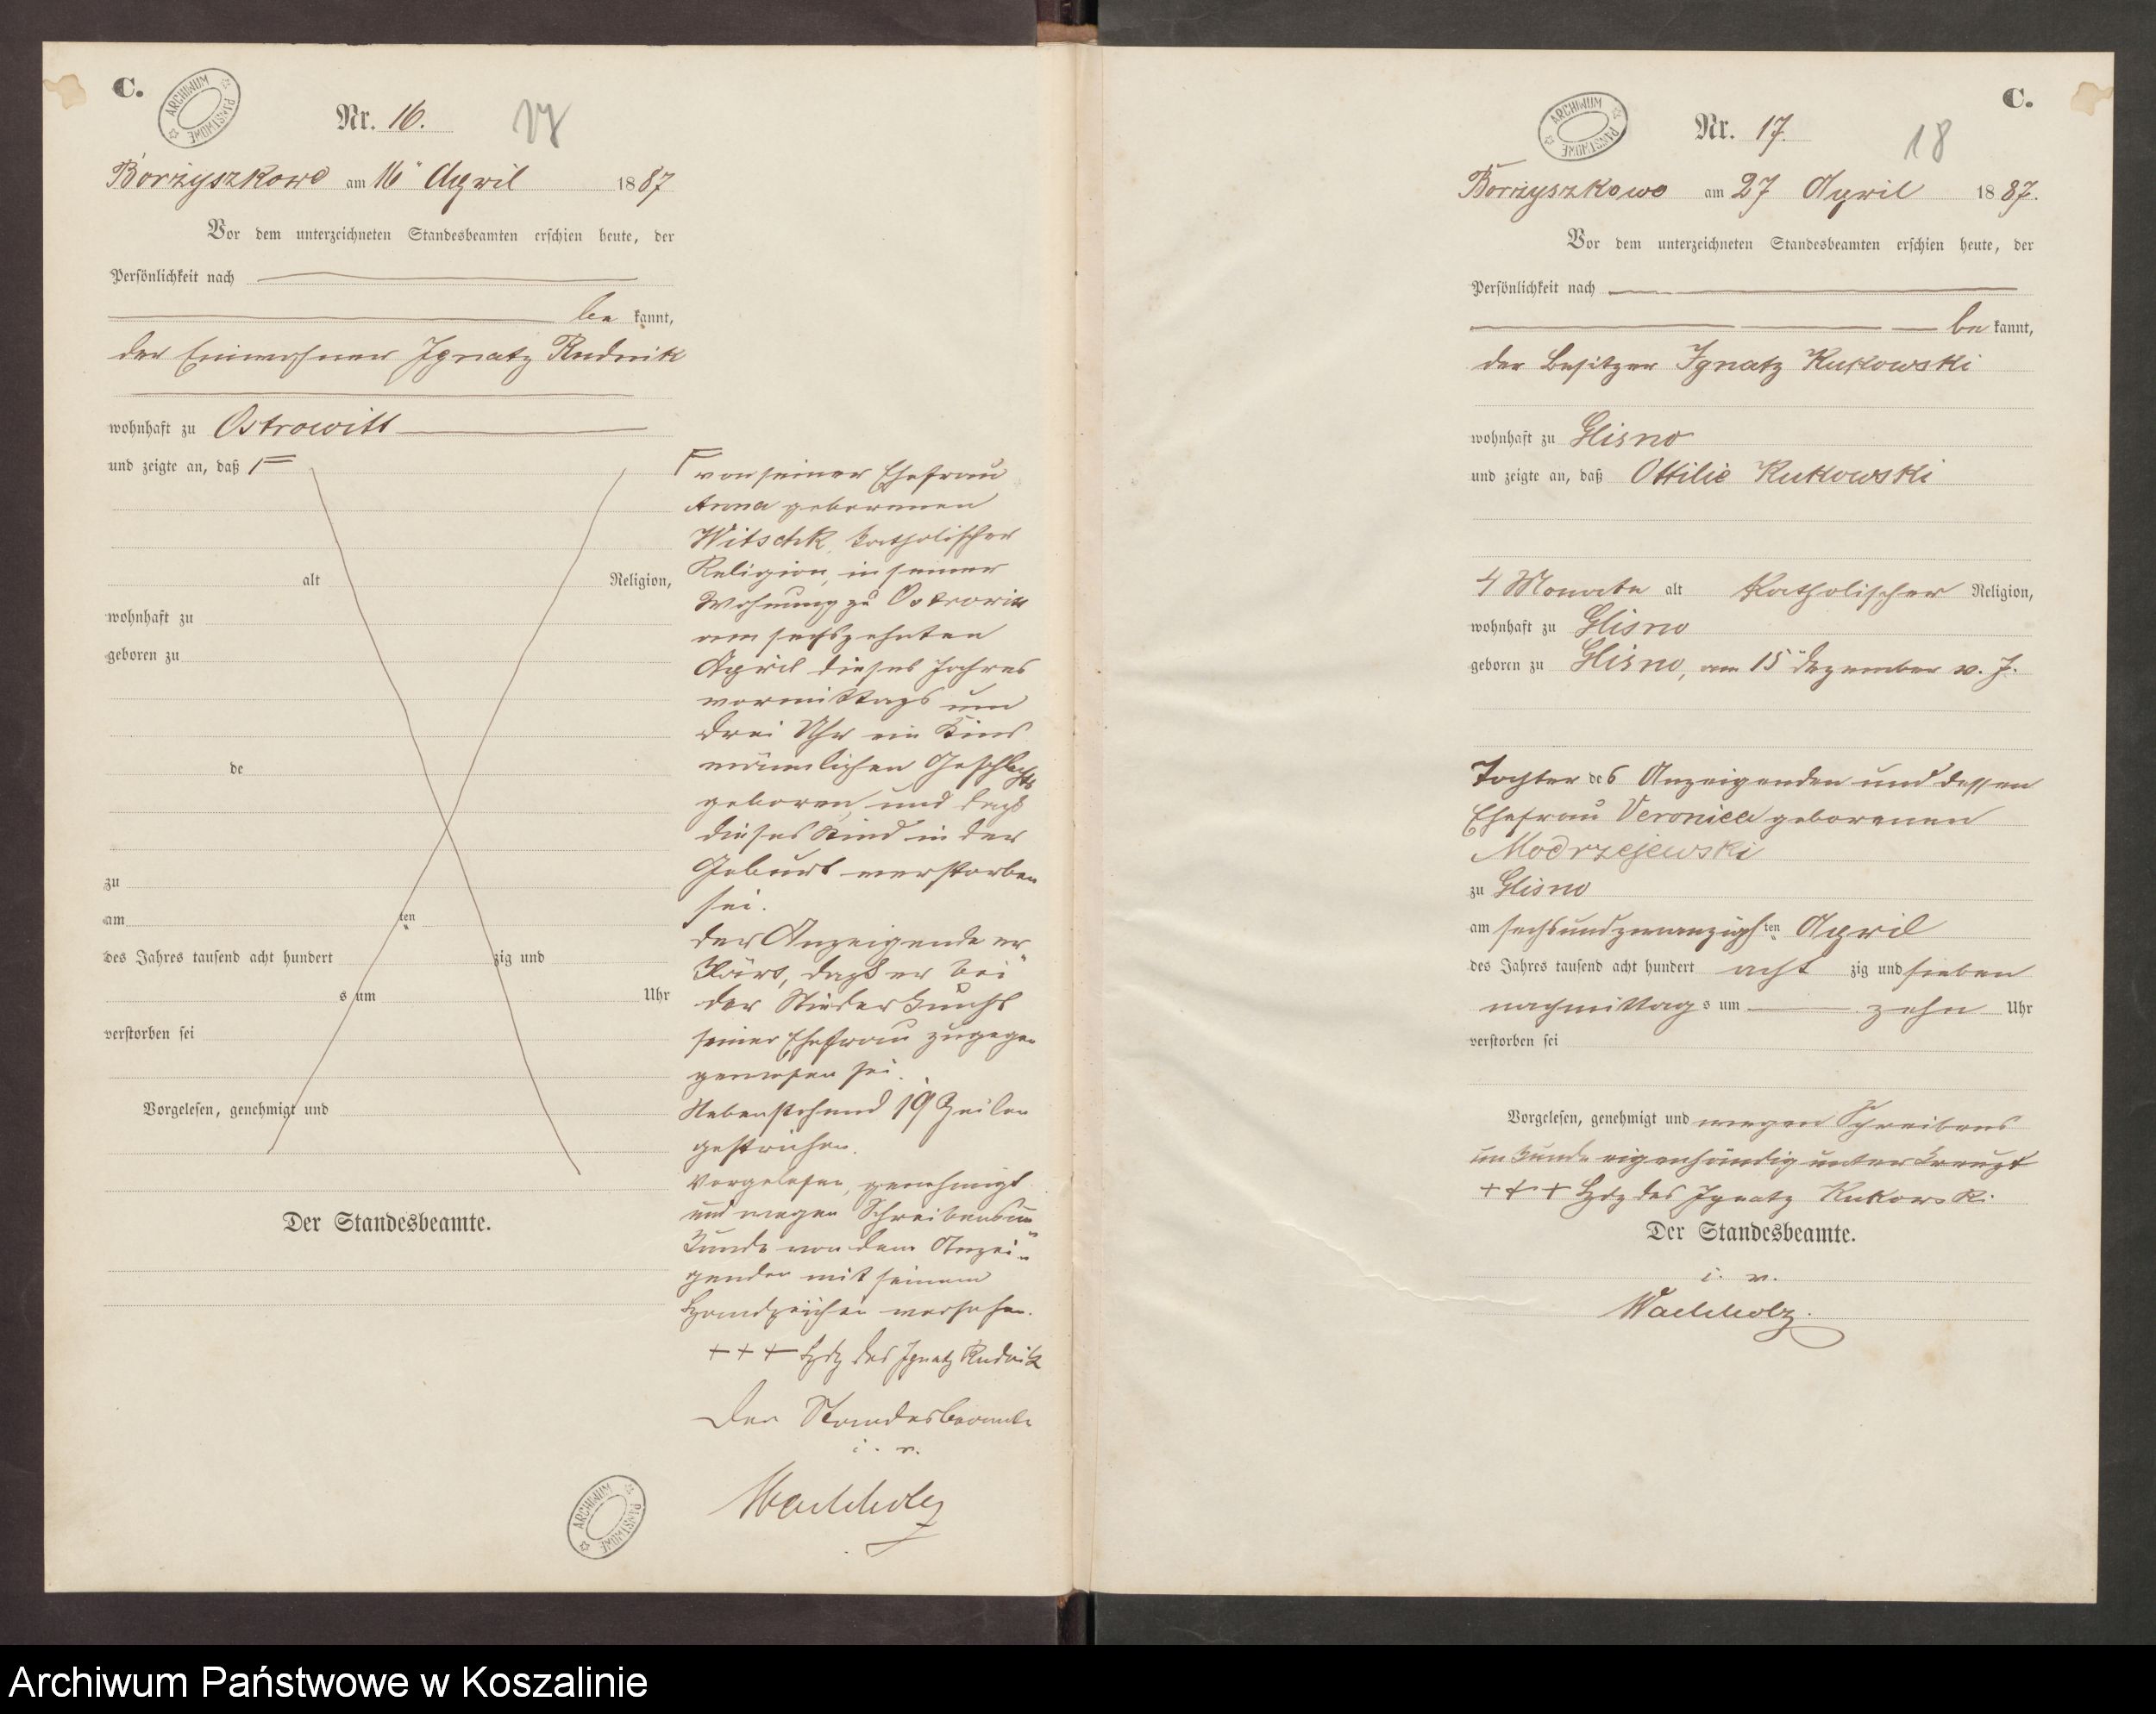 C.
ARCHIWUM PAŃSTWOWE
Nr. 16.
17
Borzyszkowo am 16" April 1887
Vor dem unterzeichneten Standesbeamten erschien heute, der
Persönlichkeit nach
be kannt,
der Einwohner Ignatz Rudnik
wohnhaft zu Ostrowitt
und zeigte an, daß
alt Religion,
wohnhaft zu
geboren zu
de
zu
am ten
des Jahres tausend acht hundert zig und
s um Uhr
verstorben sei
Vorgelesen, genehmigt und
Der Standesbeamte.
von seiner Ehefrau
Anna geborenen
Witschk, katholischer
Religion, in seiner
Wohnung zu Ostrowitt
am sechszehnten
April dieses Jahres
vormittags um
drei Uhr ein Kind
männlichen Geschlechts
geboren, und daß
dieses Kind in der
Geburt verstorben
sei.
Der Anzeigende er
klärt, daß er bei
der Niederkunft
seiner Ehefrau zugegen
gewesen sei.
Nebenstehend 19 Zeilen
gestrichen.
Vorgelesen, genehmigt
und wegen Schreibensun
kunde von dem Anzei"
genden mit seinem
Handzeichen versehen.
+++ Hdz des Ignatz Rudnik
Der Standesbeamte
i. v.
Wachholz
ARCHIWUM PAŃSTWOWE
C.
ARCHIWUM PAŃSTWOWE
Nr. 17.
18
Borzyszkowo am 27 April 1887.
Vor dem unterzeichneten Standesbeamten erschien heute, der
Persönlichkeit nach
be kannt,
der Besitzer Ignatz Kukowski
wohnhaft zu Glisno
und zeigte an, daß Ottilie Kukowski
4 Monate alt Katholischer Religion,
wohnhaft zu Glisno
geboren zu Glisno, am 15" Dezember v. J.
Tochter des Anzeigenden und dessen
Ehefrau Veronica geborenen
Modrzejewski
zu Glisno
am sechsundzwanzigsten April
des Jahres tausend acht hundert acht zig und sieben
nachmittags um zehn Uhr
verstorben sei
Vorgelesen, genehmigt und wegen Schreibens
unkunde eigenhändig unterkreuzt
+++ Hdz des Ignatz Kukowski
Der Standesbeamte.
i. v.
Wachholz.
Archiwum Państwowe w Koszalinie